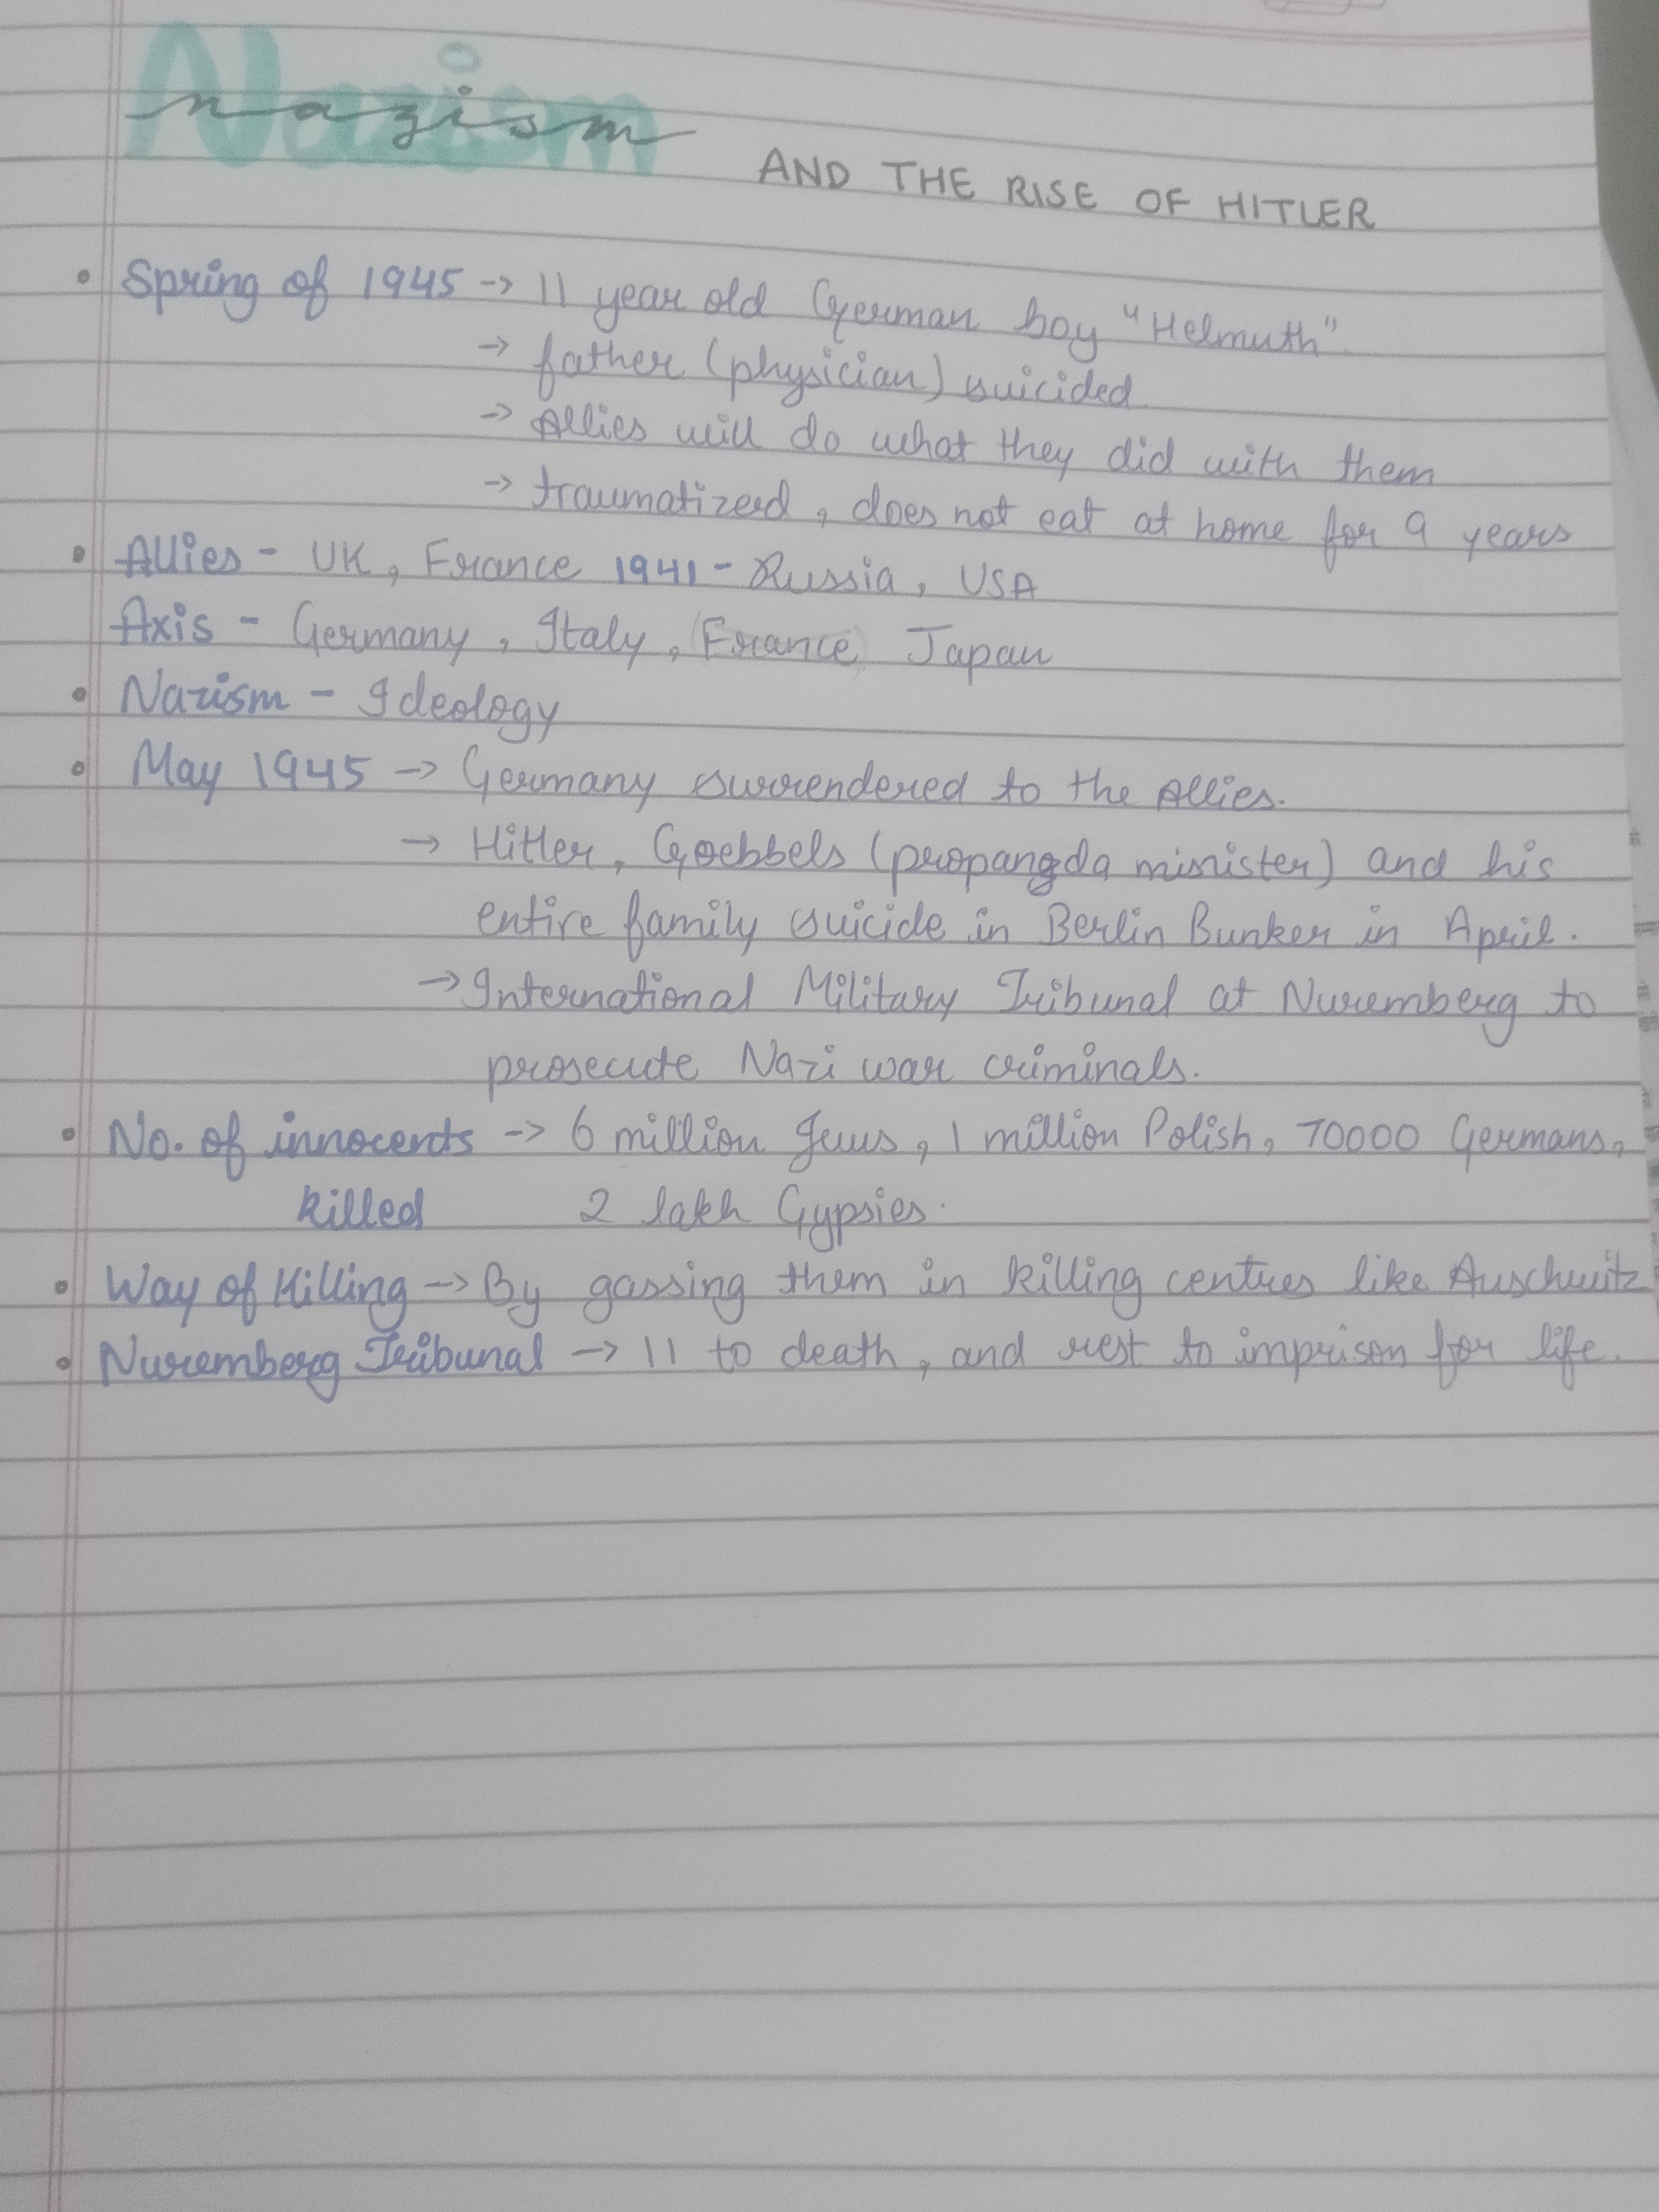 Nazism
nazism AND THE RISE OF HITLER
• Spring of 1945 -> 11 year old German boy "Helmuth".
-> father (physician) suicided.
-> Allies will do what they did with them
-> traumatized, does not eat at home for 9 years
• Allies - UK, France 1941 - Russia, USA
Axis - Germany, Italy, (France) Japan
• Nazism - Ideology
• May 1945 -> Germany surrendered to the Allies.
-> Hitler, Goebbels (propangda minister) and his
entire family suicide in Berlin Bunker in April.
-> International Military Tribunal at Nuremberg to
prosecute Nazi war criminals.
• No. of innocents -> 6 million Jews, 1 million Polish, 70000 Germans,
killed 2 lakh Gypsies.
• Way of Killing -> By gassing them in killing centres like Auschwitz
• Nuremberg Tribunal -> 11 to death, and rest to imprison for life.